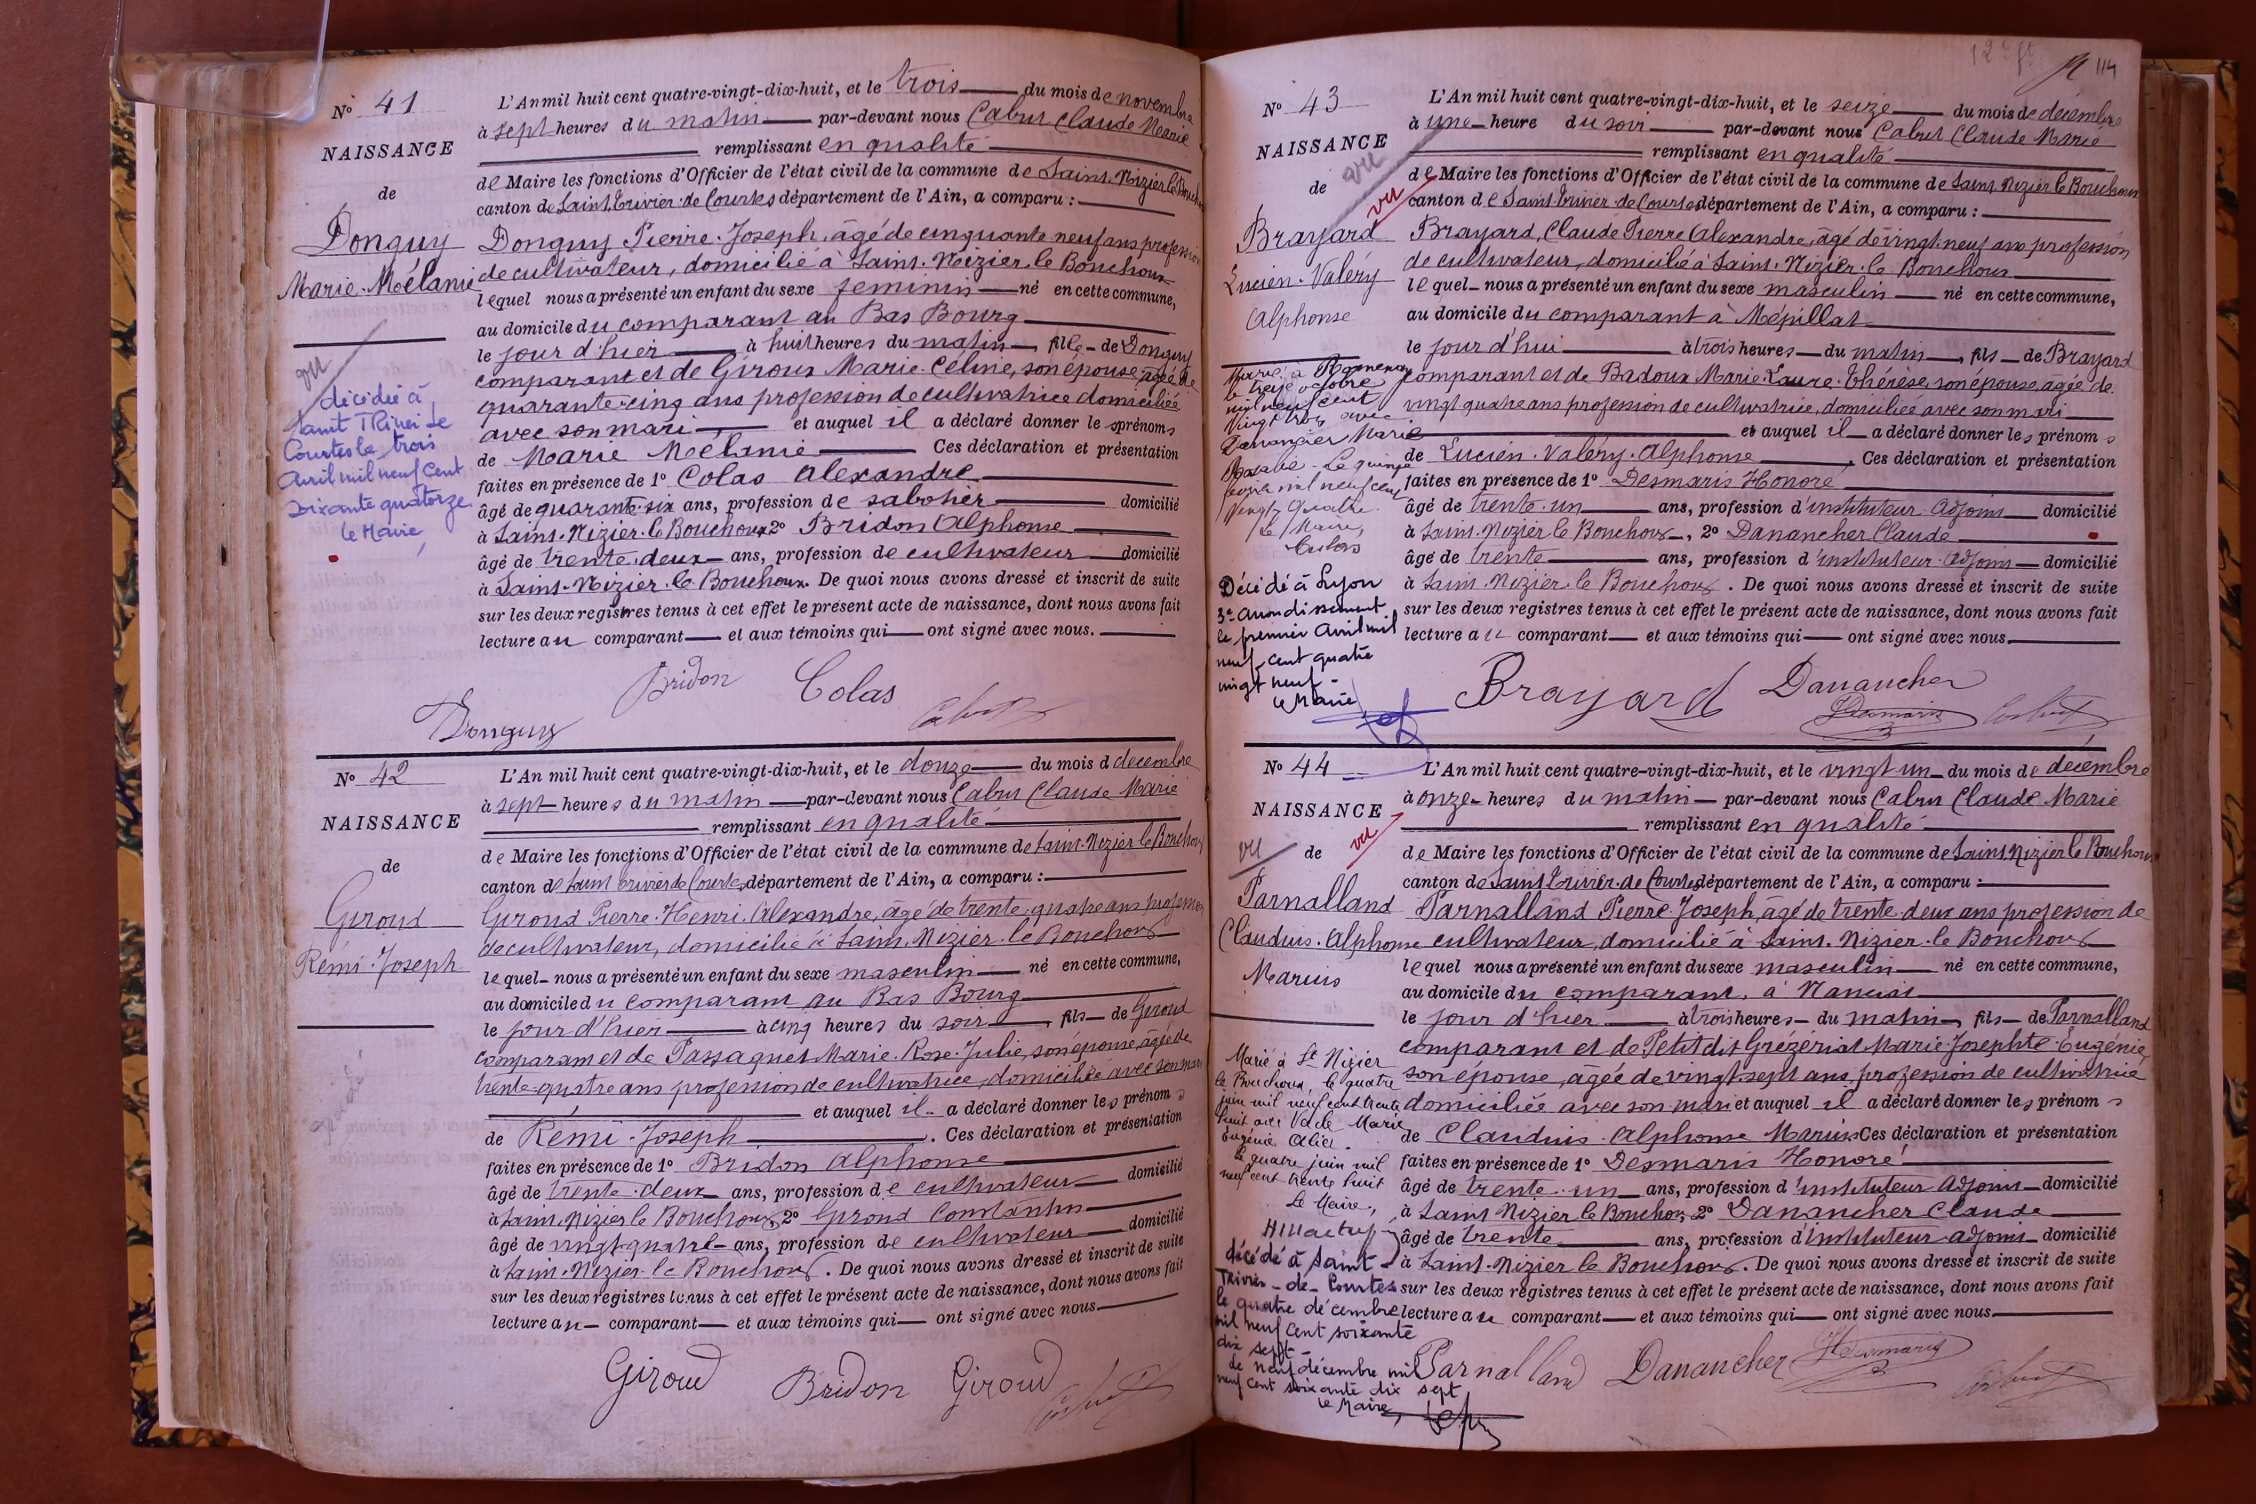 N° 41
NAISSANCE
de
Donguy
Marie. Mélanie
vu
décédée à
Saint Trivier de
Courtes le trois
Avril mil neuf cent
soixante quatorze
le Maire,
L'An mil huit cent quatre-vingt-dix-huit, et le trois du mois de novembre
à sept heures du matin par-devant nous Cabut Claude Marie
remplissant en qualité
de Maire les fonctions d'Officier de l'état civil de la commune de Saint. Nizier le Bouchoux
canton de Saint Trivier de Courtes département de l'Ain, a comparu :
Donguy Pierre. Joseph, âgé de cinquante neuf ans profession
de cultivateur, domicilié à Saint. Nizier. le Bouchoux
lequel nous a présenté un enfant du sexe feminin né en cette commune,
au domicile du comparant au Bas Bourg
le jour d'hier à huit heures du matin, fille de Donguy
comparant et de Giroux Marie. Céline, son épouse, âgée de
quarante-cinq ans profession de cultivatrice domiciliée
avec son mari et auquel il a déclaré donner les prénoms
de Marie Mélanie Ces déclaration et présentation
faites en présence de 1° Colas Alexandre
âgé de quarante-six ans, profession de sabotier domicilié
à Saint. Nizier. le Bouchoux 2° Bridon Alphonse
âgé de trente-deux ans, profession de cultivateur domicilié
à Saint. Nizier. le Bouchoux. De quoi nous avons dressé et inscrit de suite
sur les deux registres tenus à cet effet le présent acte de naissance, dont nous avons fait
lecture au comparant et aux témoins qui ont signé avec nous.
Bridon Colas
Donguy Cabut
N° 42
NAISSANCE
de
Giroud
Rémi. Joseph
L'An mil huit cent quatre-vingt-dix-huit, et le douze du mois d décembre
à sept heures du matin par-devant nous Cabut Claude Marie
remplissant en qualité
de Maire les fonctions d'Officier de l'état civil de la commune de Saint. Nizier le Bouchoux
canton de Saint Trivier de Courtes, département de l'Ain, a comparu :
Giroud Pierre. Henri. Alexandre, âgé de trente-quatre ans profession
de cultivateur, domicilié à Saint. Nizier. le Bouchoux
lequel nous a présenté un enfant du sexe masculin né en cette commune,
au domicile du comparant au Bas Bourg
le jour d'hier à cinq heures du soir, fils de Giroud
comparant et de Passaquet Marie. Rose. Julie, son épouse, âgée de
trente-quatre ans profession de cultivatrice, domiciliée avec son mari
et auquel il a déclaré donner les prénoms
de Rémi. Joseph. Ces déclaration et présentation
faites en présence de 1° Bridon Alphonse
âgé de trente-deux ans, profession de cultivateur domicilié
à Saint. Nizier le Bouchoux, 2° Giroud Constantin
âgé de vingt-quatre ans, profession de cultivateur domicilié
à Saint. Nizier. le Bouchoux. De quoi nous avons dressé et inscrit de suite
sur les deux registres tenus à cet effet le présent acte de naissance, dont nous avons fait
lecture au comparant et aux témoins qui ont signé avec nous
Giroud Bridon Giroud Cabut
114
N° 43
NAISSANCE
vu
de
vu
Brayard
Lucien. Valéry
Alphonse
Marié à Romenay
le treize octobre
mil neuf cent
vingt trois avec
Marie
Rosalie. Le quinze
mil neuf cent
vingt quatre
le Maire,
Décédé à Lyon
3e arrondissement
le premier Avril mil
neuf cent quatre
vingt neuf.
le Maire
L'An mil huit cent quatre-vingt-dix-huit, et le seize du mois de décembre
à une heure du soir par-devant nous Cabut Claude Marie
remplissant en qualité
de Maire les fonctions d'Officier de l'état civil de la commune de Saint Nizier le Bouchoux
canton de Saint Trivier de Courtes département de l'Ain, a comparu :
Brayard, Claude Pierre Alexandre, âgé de vingt-neuf ans profession
de cultivateur, domicilié à Saint. Nizier. le Bouchoux
lequel nous a présenté un enfant du sexe masculin né en cette commune,
au domicile du comparant à Mépillat
le jour d'hui à trois heures du matin, fils de Brayard
comparant et de Badoux Marie. Laure. Thérèse, son épouse, âgée de
vingt quatre ans profession de cultivatrice, domiciliée avec son mari
et auquel il a déclaré donner les prénoms
de Lucien. Valéry. Alphonse, Ces déclaration et présentation
faites en présence de 1° Desmaris Honoré
âgé de trente-un ans, profession d'instituteur adjoint domicilié
à Saint. Nizier le Bouchoux, 2° Danancher Claude
âgé de trente ans, profession d'instituteur adjoint domicilié
à Saint. Nizier le Bouchoux. De quoi nous avons dressé et inscrit de suite
sur les deux registres tenus à cet effet le présent acte de naissance, dont nous avons fait
lecture au comparant et aux témoins qui ont signé avec nous
Brayard Danancher
HDesmaris Cabut
N° 44
NAISSANCE
vu
de
vu
Parnalland
Claudius. Alphonse
Marius
Marié à St Nizier
le Bouchoux, le quatre
juin mil neuf cent trente
huit avec Marie
Eugénie Alice.
Le quatre juin mil
neuf cent trente huit
Le Maire,
décédé à Saint
Trivier-de-Courtes
le quatre décembre
mil neuf cent soixante
dix sept
le neuf décembre mil
neuf cent soixante dix sept
le Maire,
L'An mil huit cent quatre-vingt-dix-huit, et le vingt un du mois de décembre
à onze heures du matin par-devant nous Cabut Claude Marie
remplissant en qualité
de Maire les fonctions d'Officier de l'état civil de la commune de Saint Nizier le Bouchoux
canton de Saint Trivier de Courtes département de l'Ain, a comparu :
Parnalland Pierre Joseph, âgé de trente-deux ans profession de
cultivateur, domicilié à Saint. Nizier. le Bouchoux
lequel nous a présenté un enfant du sexe masculin né en cette commune,
au domicile du comparant, à Nancuat
le jour d'hier à trois heures du matin, fils de Parnalland
comparant et de Petit dit Grézériat Marie Josephte Eugénie,
son épouse, âgée de vingt-sept ans profession de cultivatrice
domiciliée avec son mari et auquel il a déclaré donner les prénoms
de Claudius. Alphonse Marius Ces déclaration et présentation
faites en présence de 1° Desmaris Honoré
âgé de trente-un ans, profession d'instituteur adjoint domicilié
à Saint Nizier le Bouchoux, 2° Danancher Claude
âgé de trente ans, profession d'instituteur adjoint domicilié
à Saint. Nizier le Bouchoux. De quoi nous avons dressé et inscrit de suite
sur les deux registres tenus à cet effet le présent acte de naissance, dont nous avons fait
lecture au comparant et aux témoins qui ont signé avec nous
Parnalland Danancher HDesmaris Cabut